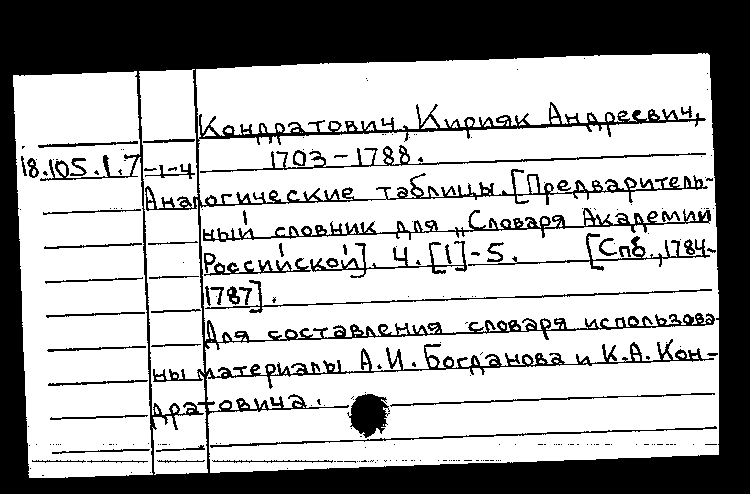 Кондратович, Кирияк Андреевич,
18.105.1.7 -1-4 1703-1788.
Аналогические таблицы. [Предваритель-
ный словник для „Словаря Академии
Российской]. Ч. [1]-5. [Спб., 1784-
1787].
Для составления словаря использова-
ны материалы А.И. Богданова и К.А. Кон-
дратовича.